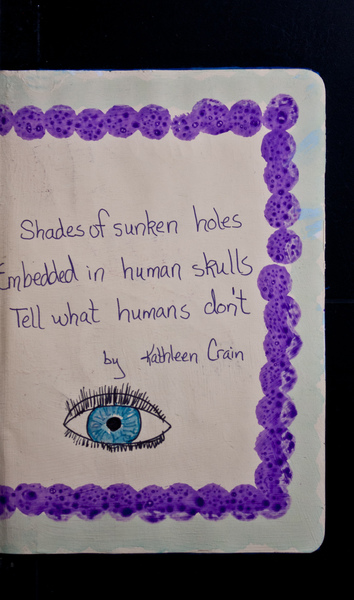 Shades of sunken holes
Embedded in human skulls
Tell what humans don't
by Kathleen Crain